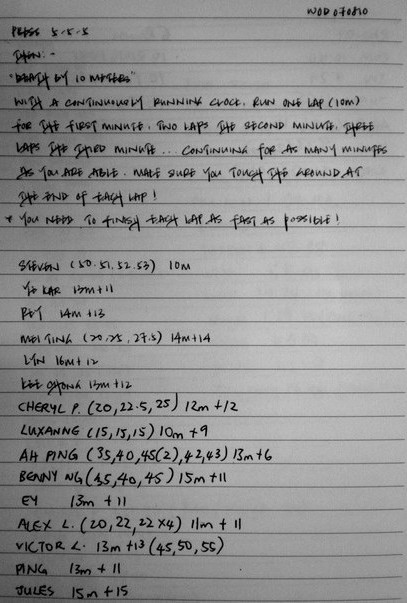 WOD 070810
PRESS 5-5-5
THEN:-
"DEATH BY 10 METERS"
WITH A CONTINUOUSLY RUNNING CLOCK, RUN ONE LAP (10m)
FOR THE FIRST MINUTE, TWO LAPS THE SECOND MINUTE, THREE
LAPS THE THIRD MINUTE... CONTINUING FOR AS MANY MINUTES
AS YOU ARE ABLE. MAKE SURE YOU TOUCH THE GROUND AT
THE END OF EACH LAP!
* YOU NEED TO FINISH EACH LAP AS FAST AS POSSIBLE!
STEVEN (50.51.52.53) 10m
YE KAR 13m+11
14m +13
MEI TING (20,25, 27.5) 14m+14
LYN 16m+12
LEE CHONG 13m+12
CHERYL P. (20,22.5,25) 12m +12
LUXANNE (15,15,15) 10m +9
AH PING (35,40,45(2),42,43) 13m+6
BENNY NG (35,40,45) 15m+11
EY 13m +11
ALEX L. (20,22,22x4) 11m + 11
VICTOR L. 13m +13 (45,50,55)
PING 13m + 11
JULES 15m +15